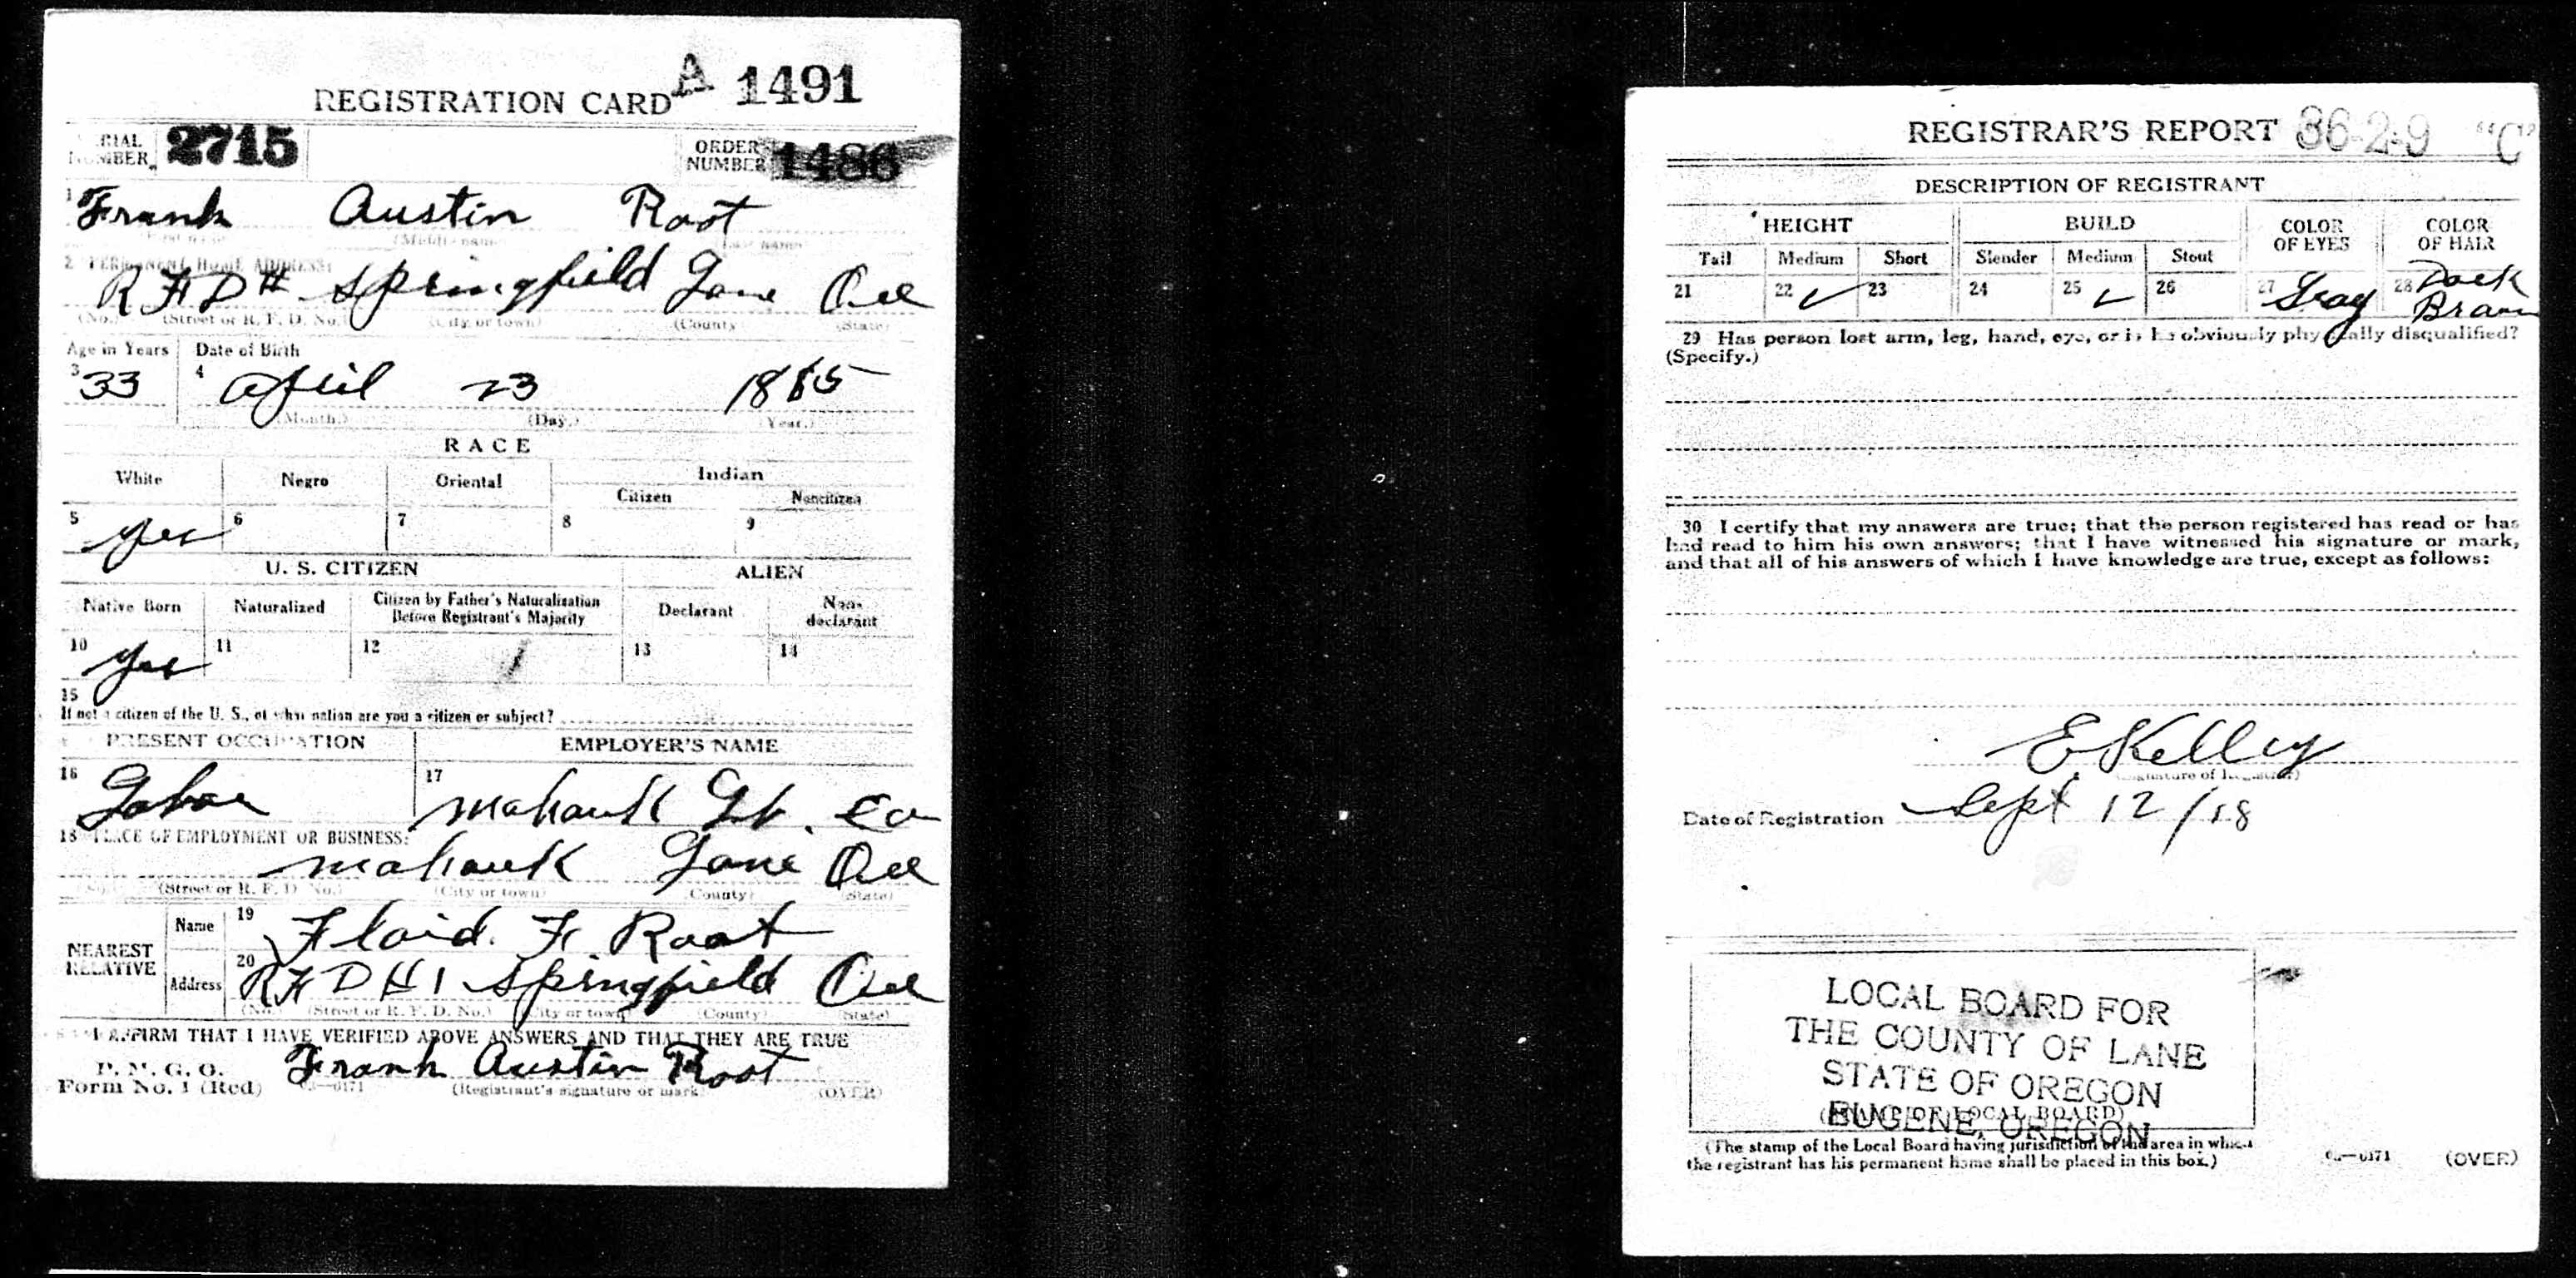 REGISTRATION CARD A 1491
SERIAL NUMBER 2715
ORDER NUMBER 1486
1 Frank Austin Root
(First name) (Middle name) (Last name)
2 PERMANENT HOME ADDRESS:
RFD # Springfield Lane Ore
(No.) (Street or R. F. D. No.) (City or town) (County) (State)
Age in Years Date of Birth
3 33 4 April 23 1885
(Month.) (Day.) (Year.)
RACE
White Negro Oriental Indian
Citizen Noncitizen
5 yes 6 7 8 9
U. S. CITIZEN ALIEN
Native Born Naturalized Citizen by Father's Naturalization Before Registrant's Majority Declarant Non-declarant
10 yes 11 12 13 14
15
If not a citizen of the U. S., of what nation are you a citizen or subject?
PRESENT OCCUPATION EMPLOYER'S NAME
16 Labor 17 Mohawk Lb. Co
18 PLACE OF EMPLOYMENT OR BUSINESS:
Mohawk Lane Ore
(No.) (Street or R. F. D. No.) (City or town) (County) (State)
NEAREST RELATIVE
Name 19 Floid. F. Root
Address 20 RFD #1 Springfield Ore
(No.) (Street or R. F. D. No.) (City or town) (County) (State)
I AFFIRM THAT I HAVE VERIFIED ABOVE ANSWERS AND THAT THEY ARE TRUE
P. M. G. O.
Form No. 1 (Red) Frank Austin Root
(Registrant's signature or mark) (OVER)
REGISTRAR'S REPORT 36-2-9 "C"
DESCRIPTION OF REGISTRANT
HEIGHT BUILD COLOR OF EYES COLOR OF HAIR
Tall Medium Short Slender Medium Stout
21 22 ✓ 23 24 25 ✓ 26 27 Gray 28 Dark Brown
29 Has person lost arm, leg, hand, eye, or is he obviously physically disqualified?
(Specify.)
30 I certify that my answers are true; that the person registered has read or has
had read to him his own answers; that I have witnessed his signature or mark,
and that all of his answers of which I have knowledge are true, except as follows:
E Kelley
(Signature of Registrar)
Date of Registration Sept 12/18
LOCAL BOARD FOR
THE COUNTY OF LANE
STATE OF OREGON
EUGENE, OREGON
(STAMP OF LOCAL BOARD)
(The stamp of the Local Board having jurisdiction of the area in which
the registrant has his permanent home shall be placed in this box.)
03—6171 (OVER)